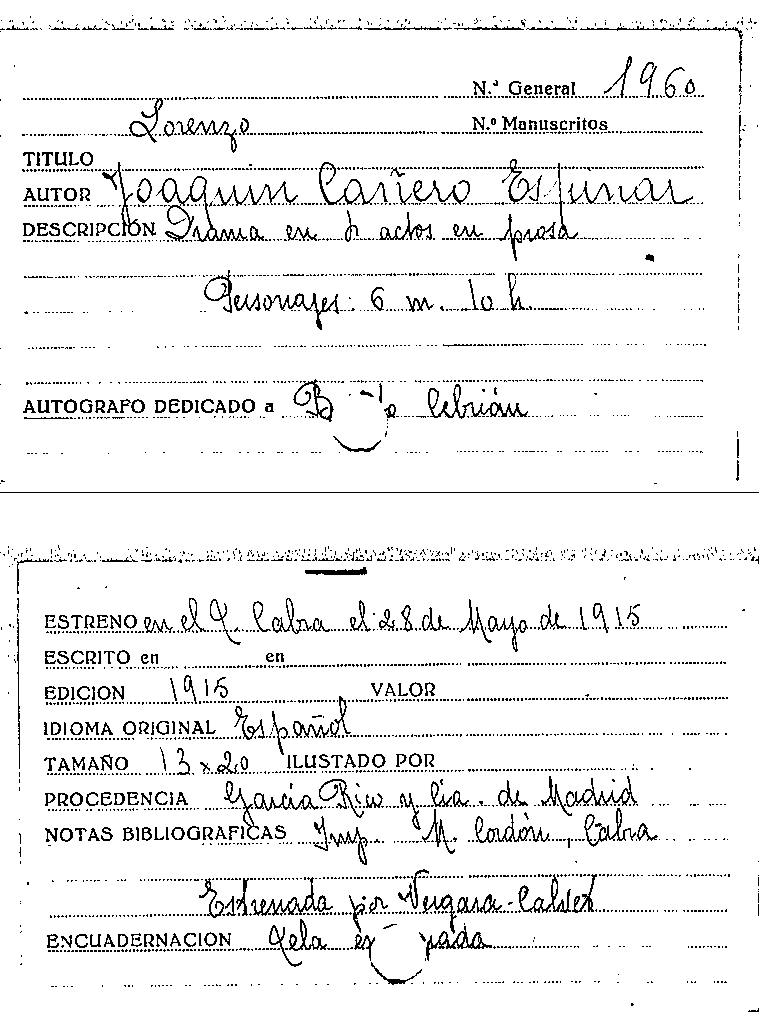 N.º General 1960
Lorenzo N.º Manuscritos
TITULO
AUTOR Joaquin Cañero Espinar
DESCRIPCIÓN Drama en actos en prosa
Personajes: 6 m. 10 h.
AUTOGRAFO DEDICADO a Cebrián
ESTRENO en el T. Cabra el 28 de Mayo de 1915
ESCRITO en en
EDICION 1915 VALOR
IDIOMA ORIGINAL Español
TAMAÑO 13 x 20 ILUSTADO POR
PROCEDENCIA García Rico y Cia. de Madrid
NOTAS BIBLIOGRAFICAS Imp. M. Cordón, Cabra
Estrenada por Vergara-Calvet
ENCUADERNACION Tela